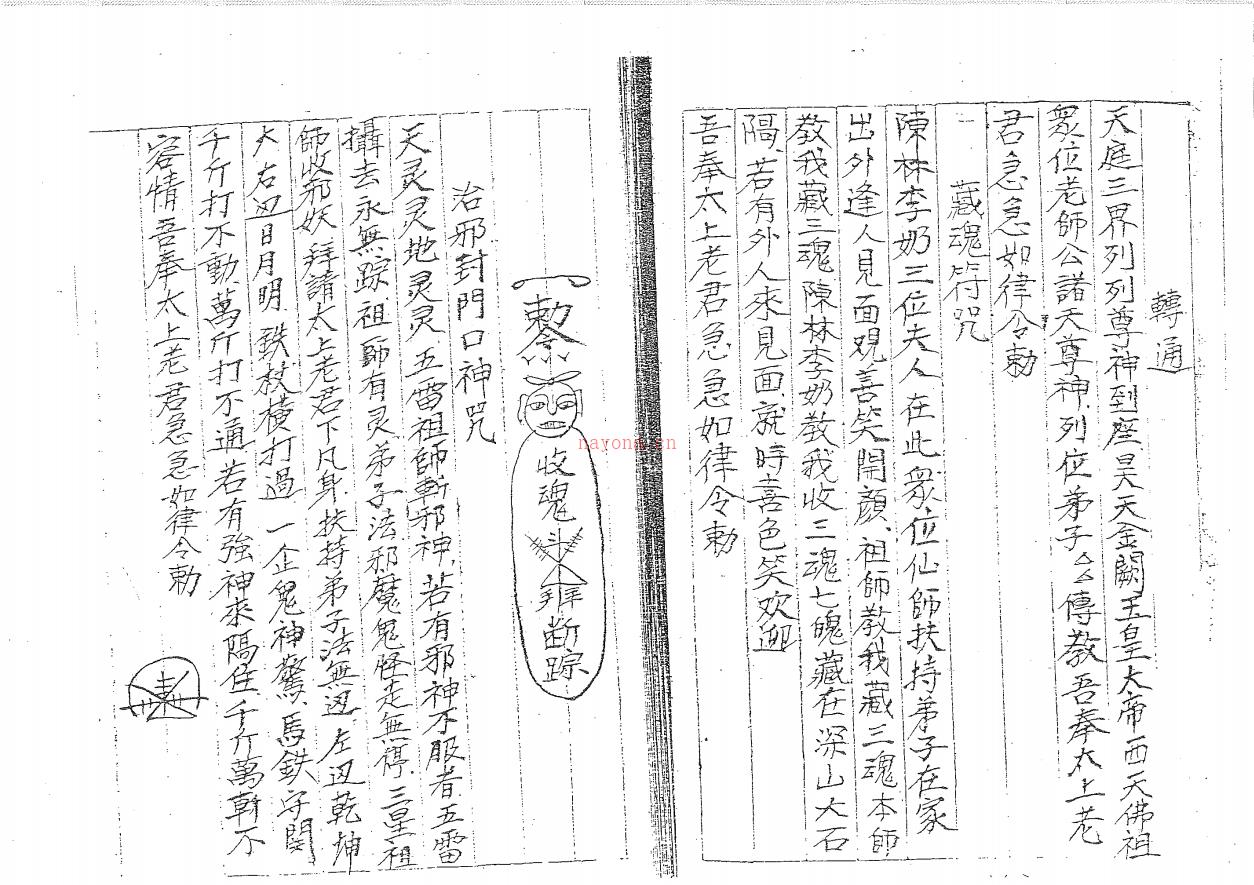 轉通
天庭三界列列尊神到座昊天金闕玉皇大帝西天佛祖
衆位老師公諸天尊神列位弟子厶厶傳教吾奉太上老
君急急如律令勅
藏魂符咒
陳林李奶三位夫人在此衆位仙師扶持弟子在家
出外逢人見面观善笑開顔、祖師教我藏三魂本師
教我藏三魂陳林李奶教我收三魂七魄藏在深山大石
隔、若有外人來見面就時喜色笑欢迎
吾奉太上老君急急如律令勅
勅令
收魂 斬断踪
治邪封門口神咒
天灵灵地灵灵五雷祖師斬邪神若有邪神不服者五雷
攝去永無踪祖師有灵弟子法邪魔鬼怪走無停三皇祖
師收邪妖拜請太上老君下凡身扶持弟子法無边左边乾坤
大右边日月明鉄杖横打過一企鬼神驚馬鉄守関
千斤打不動萬斤打不通若有強神來隔住千斤萬斬不
容情吾奉太上老君急急如律令勅
nayona.cn